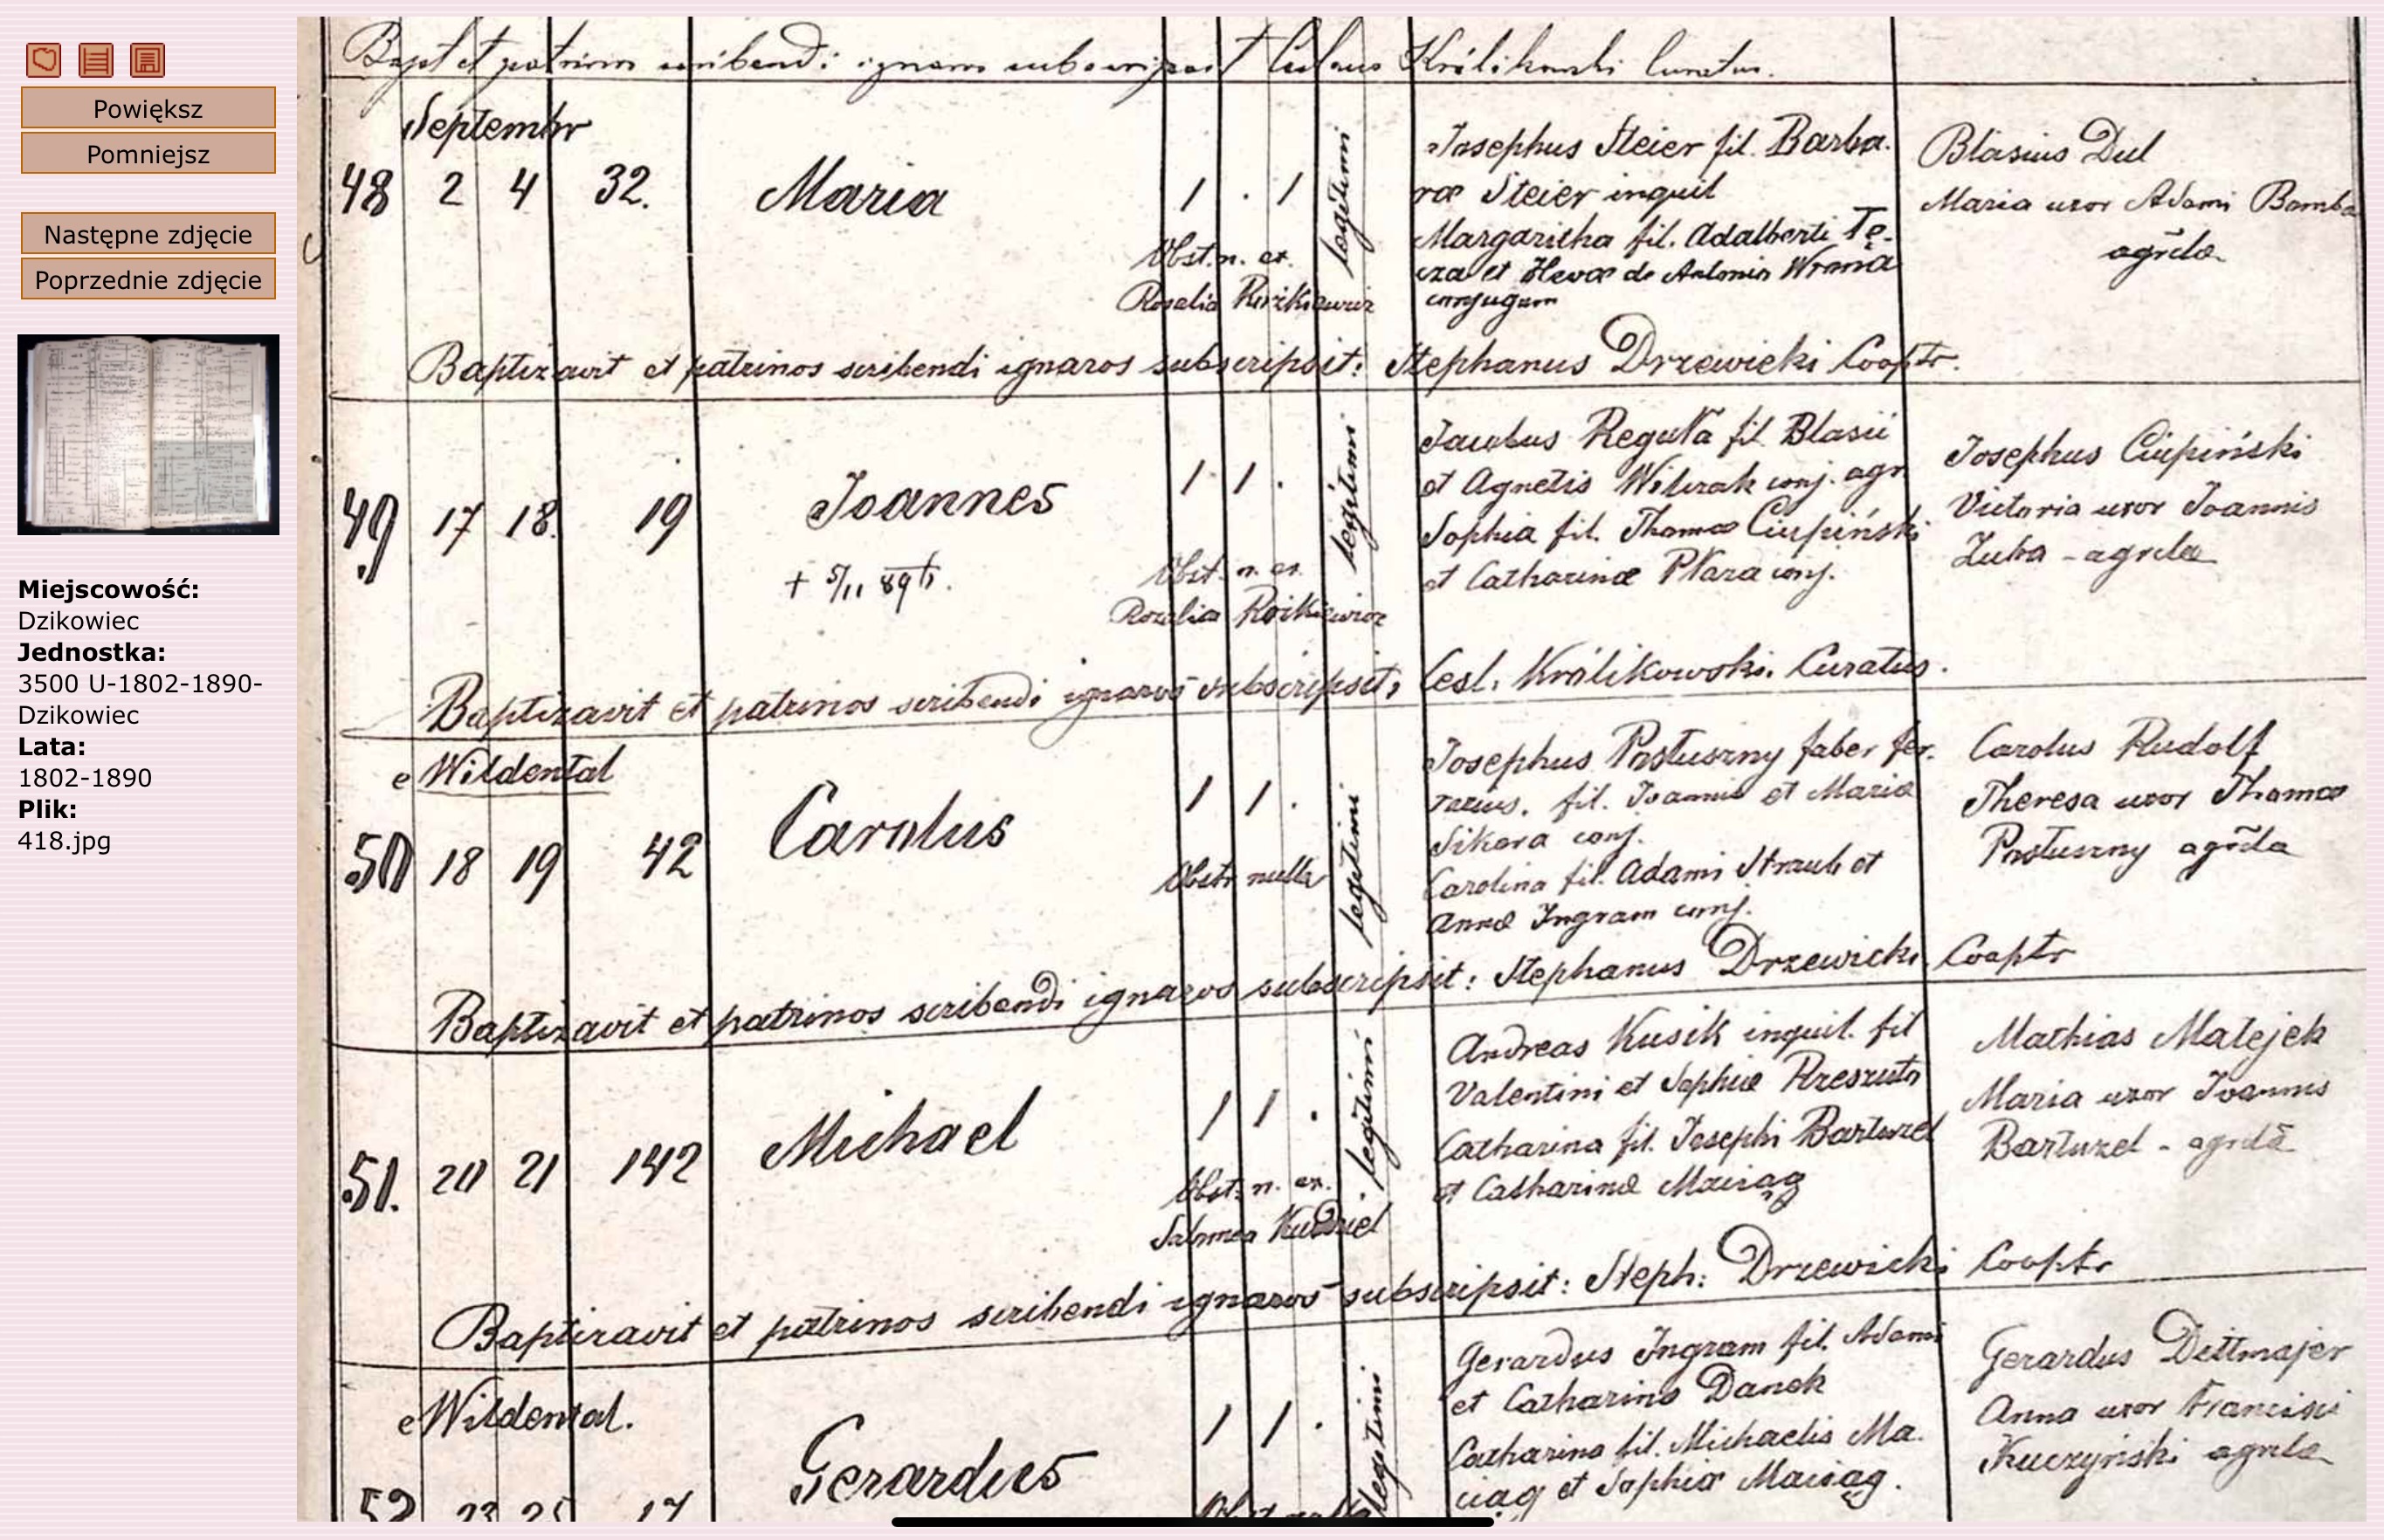 Powiększ
Pomniejsz
Następne zdjęcie
Poprzednie zdjęcie
Miejscowość:
Dzikowiec
Jednostka:
3500 U-1802-1890-
Dzikowiec
Lata:
1802-1890
Plik:
418.jpg
Bapt et patrinos scribendi ignaros subscripsit Królikowski Curatus.
Septembr
48 2 4 32. Maria 1 . 1 legitimi
Obst. n. ex.
Rosalia
Josephus Steier fil. Barba-
ræ Steier inquil
Margaritha fil. Adalberti Tę-
cza et Hevæ de Antonio Wrona
conjugum
Blasius Dul
Maria uxor Adami Bomba
agrlæ
Baptizavit et patrinos scribendi ignaros subscripsit: Stephanus Drzewicki Cooptr.
49 17 18 19 Joannes 1 1 . legitimi
+ 5/11 89
Obst. n. ex.
Rozalia
Jacobus Reguła fil Blasii
et Agnetis Wilczak conj. agr.
Sophia fil. Thomæ Ciupiński
et Catharinæ Płaza conj.
Josephus Ciupiński
Victoria uxor Joannis
Zuba - agrlæ
Baptizavit et patrinos scribendi ignaros subscripsit, Cesl. Królikowski. Curatus.
e Wildental
50 18 19 42 Carolus 1 1 . legitimi
Obstr nulla
Josephus Pastuszny faber fer-
rarius. fil. Joannis et Mariæ
Sikora conj.
Carolina fil. Adami Straub et
Annæ Ingram conj.
Carolus Rudolf
Theresa uxor Thomæ
Pastuszny agrla
Baptizavit et patrinos scribendi ignaros subscripsit: Stephanus Drzewicki Cooptr
51. 20 21 142 Michael 1 1 . legitimi
Obst. n. ex.
Salomea Kudziel
Andreas Kusik inquil. fil
Valentini et Sophiæ Rzeszuto
Catharina fil. Josephi Bartuzel
et Catharinæ Maciąg
Mathias Matejek
Maria uxor Joannis
Bartuzel - agrla
Baptizavit et patrinos scribendi ignaros subscripsit: Steph: Drzewicki Cooptr
e Wildental.
52 23 25 17 Gerardus 1 1 . legitimi
Gerardus Ingram fil. Adami
et Catharina Danek
Catharina fil. Michaelis Ma-
ciąg et Sophiæ Maciąg.
Gerardus Dettmajer
Anna uxor Francisci
Kuczyński agrla